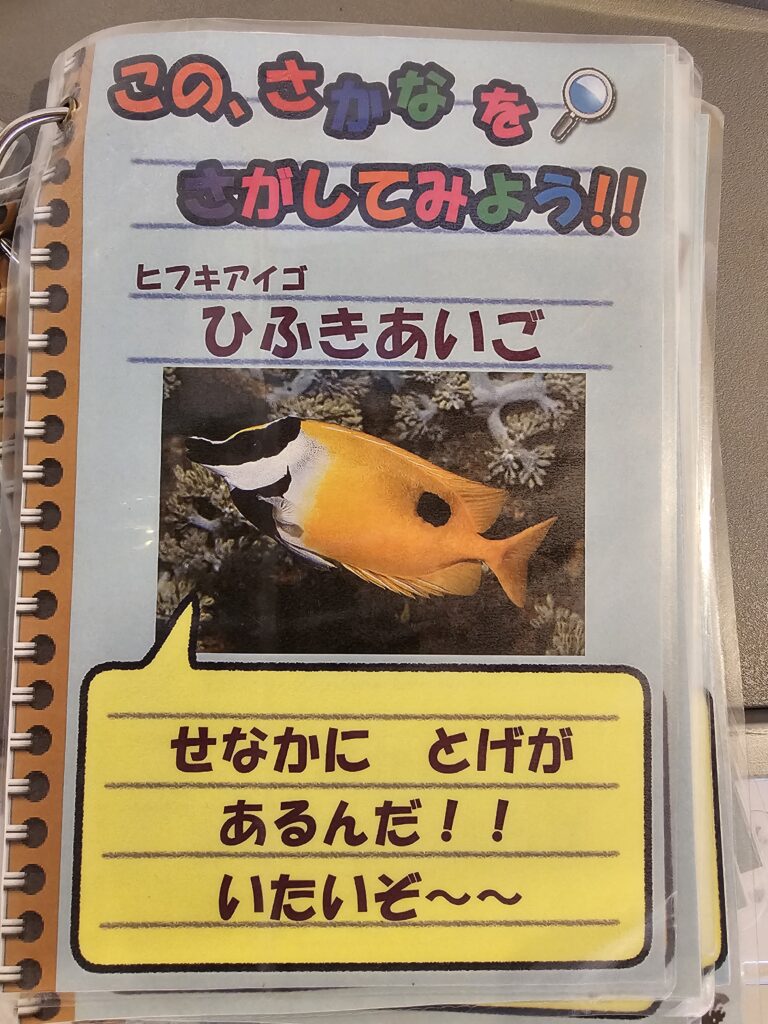 この、さかなを
さがしてみよう!!
ヒフキアイゴ
ひふきあいご
せなかに　とげが
あるんだ！！
いたいぞ～～